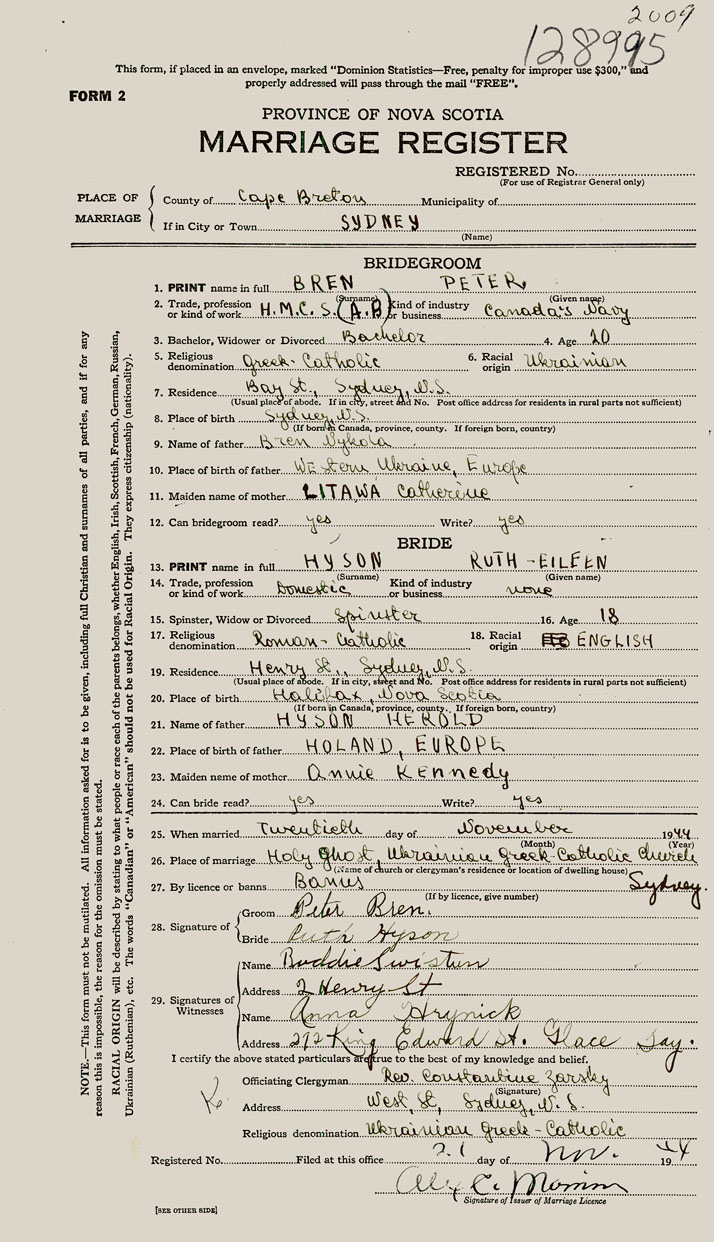 2009
128995
This form, if placed in an envelope, marked "Dominion Statistics—Free, penalty for improper use $300," and
properly addressed will pass through the mail "FREE".
FORM 2
PROVINCE OF NOVA SCOTIA
MARRIAGE REGISTER
REGISTERED No.
(For use of Registrar General only)
PLACE OF MARRIAGE
County of Cape Breton Municipality of
If in City or Town SYDNEY
(Name)
BRIDEGROOM
1. PRINT name in full BREN PETER
(Surname) (Given name)
2. Trade, profession or kind of work H.M.C.S. (A.B) Kind of industry or business Canada's Navy
3. Bachelor, Widower or Divorced Bachelor 4. Age 20
5. Religious denomination Greek-Catholic 6. Racial origin Ukrainian
7. Residence Bay St., Sydney, N.S.
(Usual place of abode. If in city, street and No. Post office address for residents in rural parts not sufficient)
8. Place of birth Sydney, N.S.
(If born in Canada, province, county. If foreign born, country)
9. Name of father Bren Nykola
10. Place of birth of father Western Ukraine, Europe
11. Maiden name of mother LITAWA Catherine
12. Can bridegroom read? yes Write? yes
BRIDE
13. PRINT name in full HYSON RUTH-EILEEN
(Surname) (Given name)
14. Trade, profession or kind of work Domestic Kind of industry or business none
15. Spinster, Widow or Divorced Spinster 16. Age 18
17. Religious denomination Roman-Catholic 18. Racial origin ENGLISH
19. Residence Henry St., Sydney, N.S.
(Usual place of abode. If in city, street and No. Post office address for residents in rural parts not sufficient)
20. Place of birth Halifax, Nova Scotia
(If born in Canada, province, county. If foreign born, country)
21. Name of father HYSON HEROLD
22. Place of birth of father HOLAND, EUROPE
23. Maiden name of mother Annie Kennedy
24. Can bride read? yes Write? yes
25. When married Twentieth day of November 1944
(Month) (Year)
26. Place of marriage Holy Ghost, Ukrainian Greek-Catholic Church
(Name of church or clergyman's residence or location of dwelling house)
Sydney.
27. By licence or banns Banns
(If by licence, give number)
28. Signature of
Groom Peter Bren.
Bride Ruth Hyson
29. Signatures of Witnesses
Name Buddie Swistun
Address 2 Henry St
Name Anna Hrynick
Address 272 King Edward St. Glace Bay.
I certify the above stated particulars are true to the best of my knowledge and belief.
Officiating Clergyman Rev. Constantine Zarsky
(Signature)
Address West St, Sydney, N.S.
Religious denomination Ukrainian Greek-Catholic
Registered No. Filed at this office 21 day of Nov. 1944
Alex C.
Signature of Issuer of Marriage Licence
[SEE OTHER SIDE]
NOTE.—This form must not be mutilated. All information asked for is to be given, including full Christian and surnames of all parties, and if for any
reason this is impossible, the reason for the omission must be stated.
RACIAL ORIGIN will be described by stating to what people or race each of the parents belongs, whether English, Irish, Scottish, French, German, Russian,
Ukrainian (Ruthenian), etc. The words "Canadian" or "American" should not be used for Racial Origin. They express citizenship (nationality).